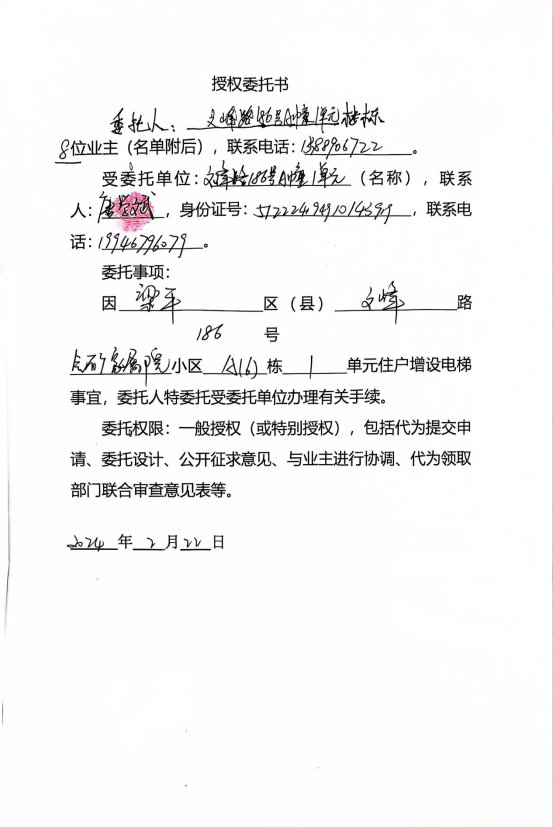 授权委托书
委托人：文峰路186号A幢1单元楼栋
8位业主（名单附后），联系电话：1388906722。
受委托单位：文峰路186号A幢1单元（名称），联系
人：唐学斌，身份证号：51222419491014399，联系电
话：19946796079。
委托事项：
因 梁平 区（县） 文峰 路
186 号
家属院小区 A(6) 栋 1 单元住户增设电梯
事宜，委托人特委托受委托单位办理有关手续。
委托权限：一般授权（或特别授权），包括代为提交申
请、委托设计、公开征求意见、与业主进行协调、代为领取
部门联合审查意见表等。
2024 年 2 月 22 日